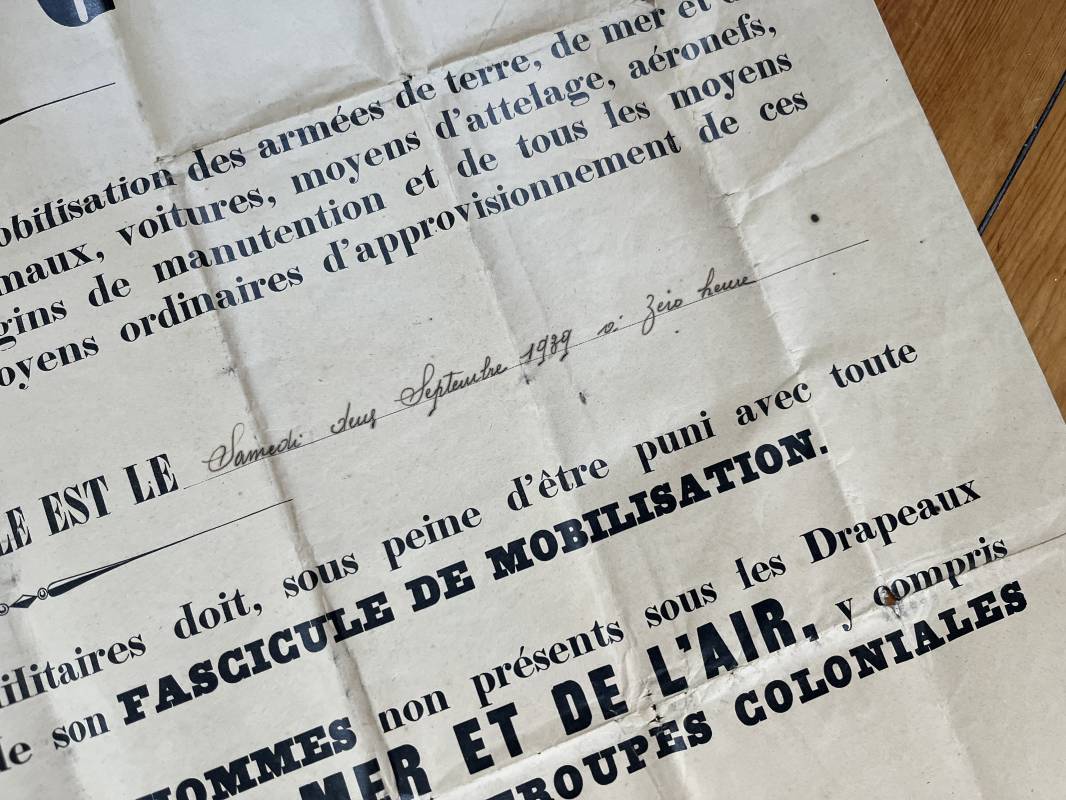 obilisation des armées de terre, de mer et d
maux, voitures, moyens d'attelage, aéronefs,
gins de manutention et de tous les moyens
oyens ordinaires d'approvisionnement de ces
LE EST LE Samedi deux Septembre 1939 à zéro heure
ilitaires doit, sous peine d'être puni avec toute
le son FASCICULE DE MOBILISATION.
HOMMES non présents sous les Drapeaux
MER ET DE L'AIR, y compris
TROUPES COLONIALES